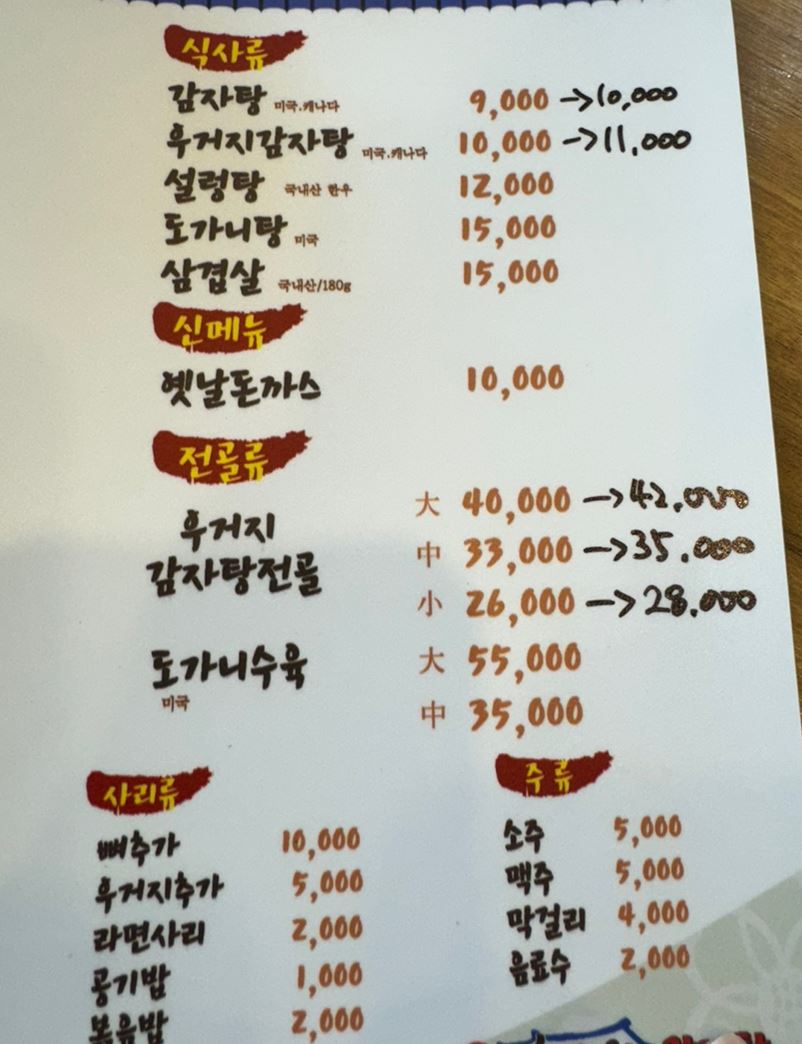 식사류
감자탕 미국.캐나다 9,000 →10,000
후거지감자탕 미국.캐나다 10,000 →11,000
설렁탕 국내산 한우 12,000
도가니탕 미국 15,000
삼겹살 국내산/180g 15,000
신메뉴
옛날돈까스 10,000
전골류
후거지
감자탕전골
大 40,000 →42.000
中 33,000 →35.000
小 26,000 →28.000
도가니수육
미국
大 55,000
中 35,000
사리류
뼈추가 10,000
후거지추가 5,000
라면사리 2,000
공기밥 1,000
볶음밥 2,000
주류
소주 5,000
맥주 5,000
막걸리 4,000
음료수 2,000